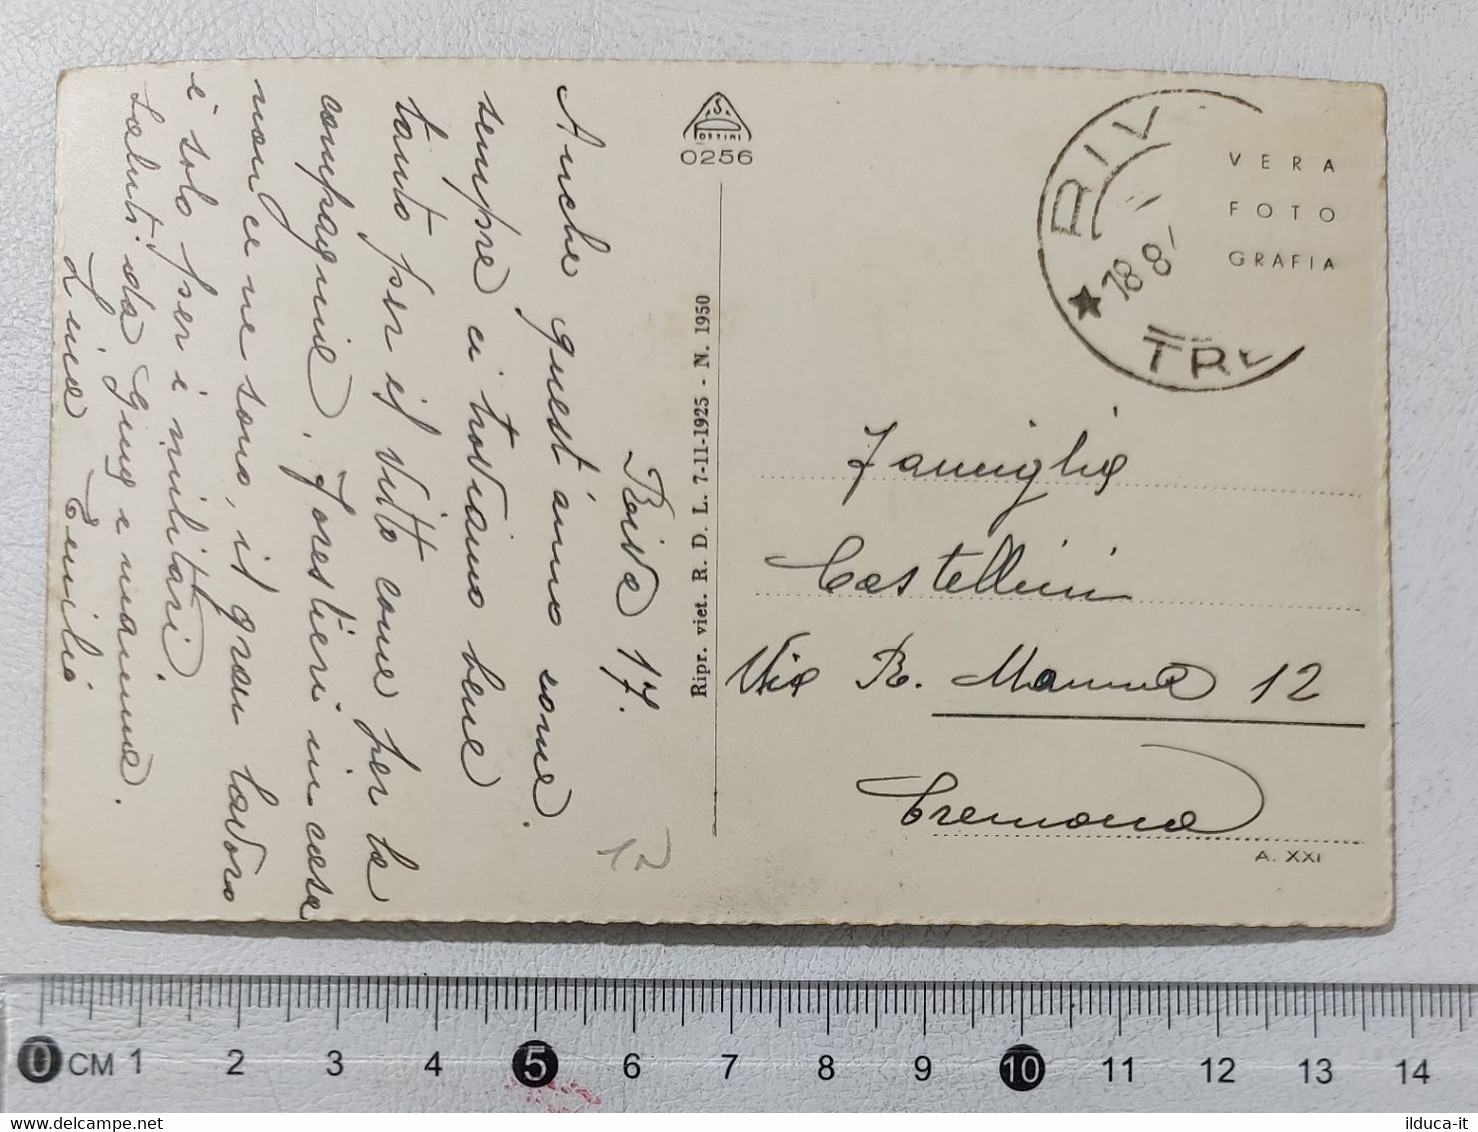 Riva 17.
Anche quest'anno come
sempre ci troviamo bene
tanto per il vitto come per la
compagnia. Forestieri in casa
non ce ne sono, il gran lavoro
è solo per i militari.
Saluti da Giug e mamma.
Lina Emilia
12
S.A.
FOTTINI
0256
Ripr. viet. R. D. L. 7-II-1925 - N. 1950
RIV
18 8-
TR
VERA
FOTO
GRAFIA
Famiglia
Castellini
Via R. Manna 12
Cremona
A. XXI
0 CM 1 2 3 4 5 6 7 8 9 10 11 12 13 14
ilduca-it